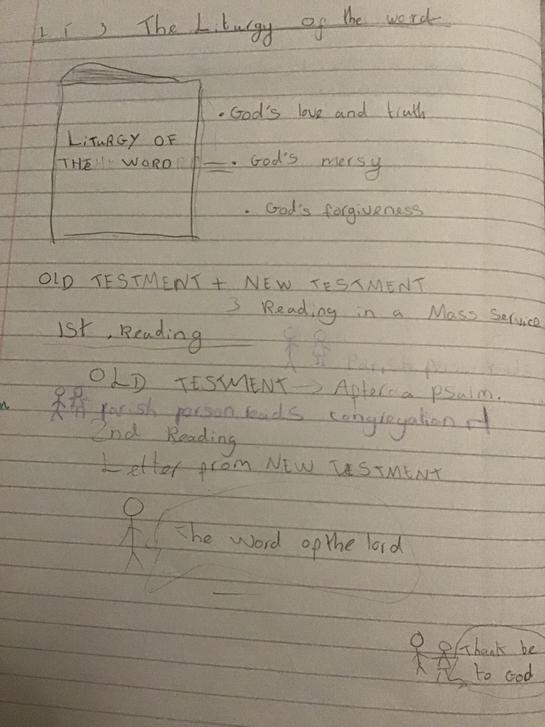 The Liturgy of the word
LITURGY OF
THE WORD
• God's love and truth
= • God's mersy
• God's forgiveness
OLD TESTMENT + NEW TESTMENT
3 Reading in a Mass Service
1st . Reading
OLD TESTMENT → After a psalm.
parish person leads congregation
2nd Reading
Letter from NEW TESTMENT
The word of the lord
Thank be
to God